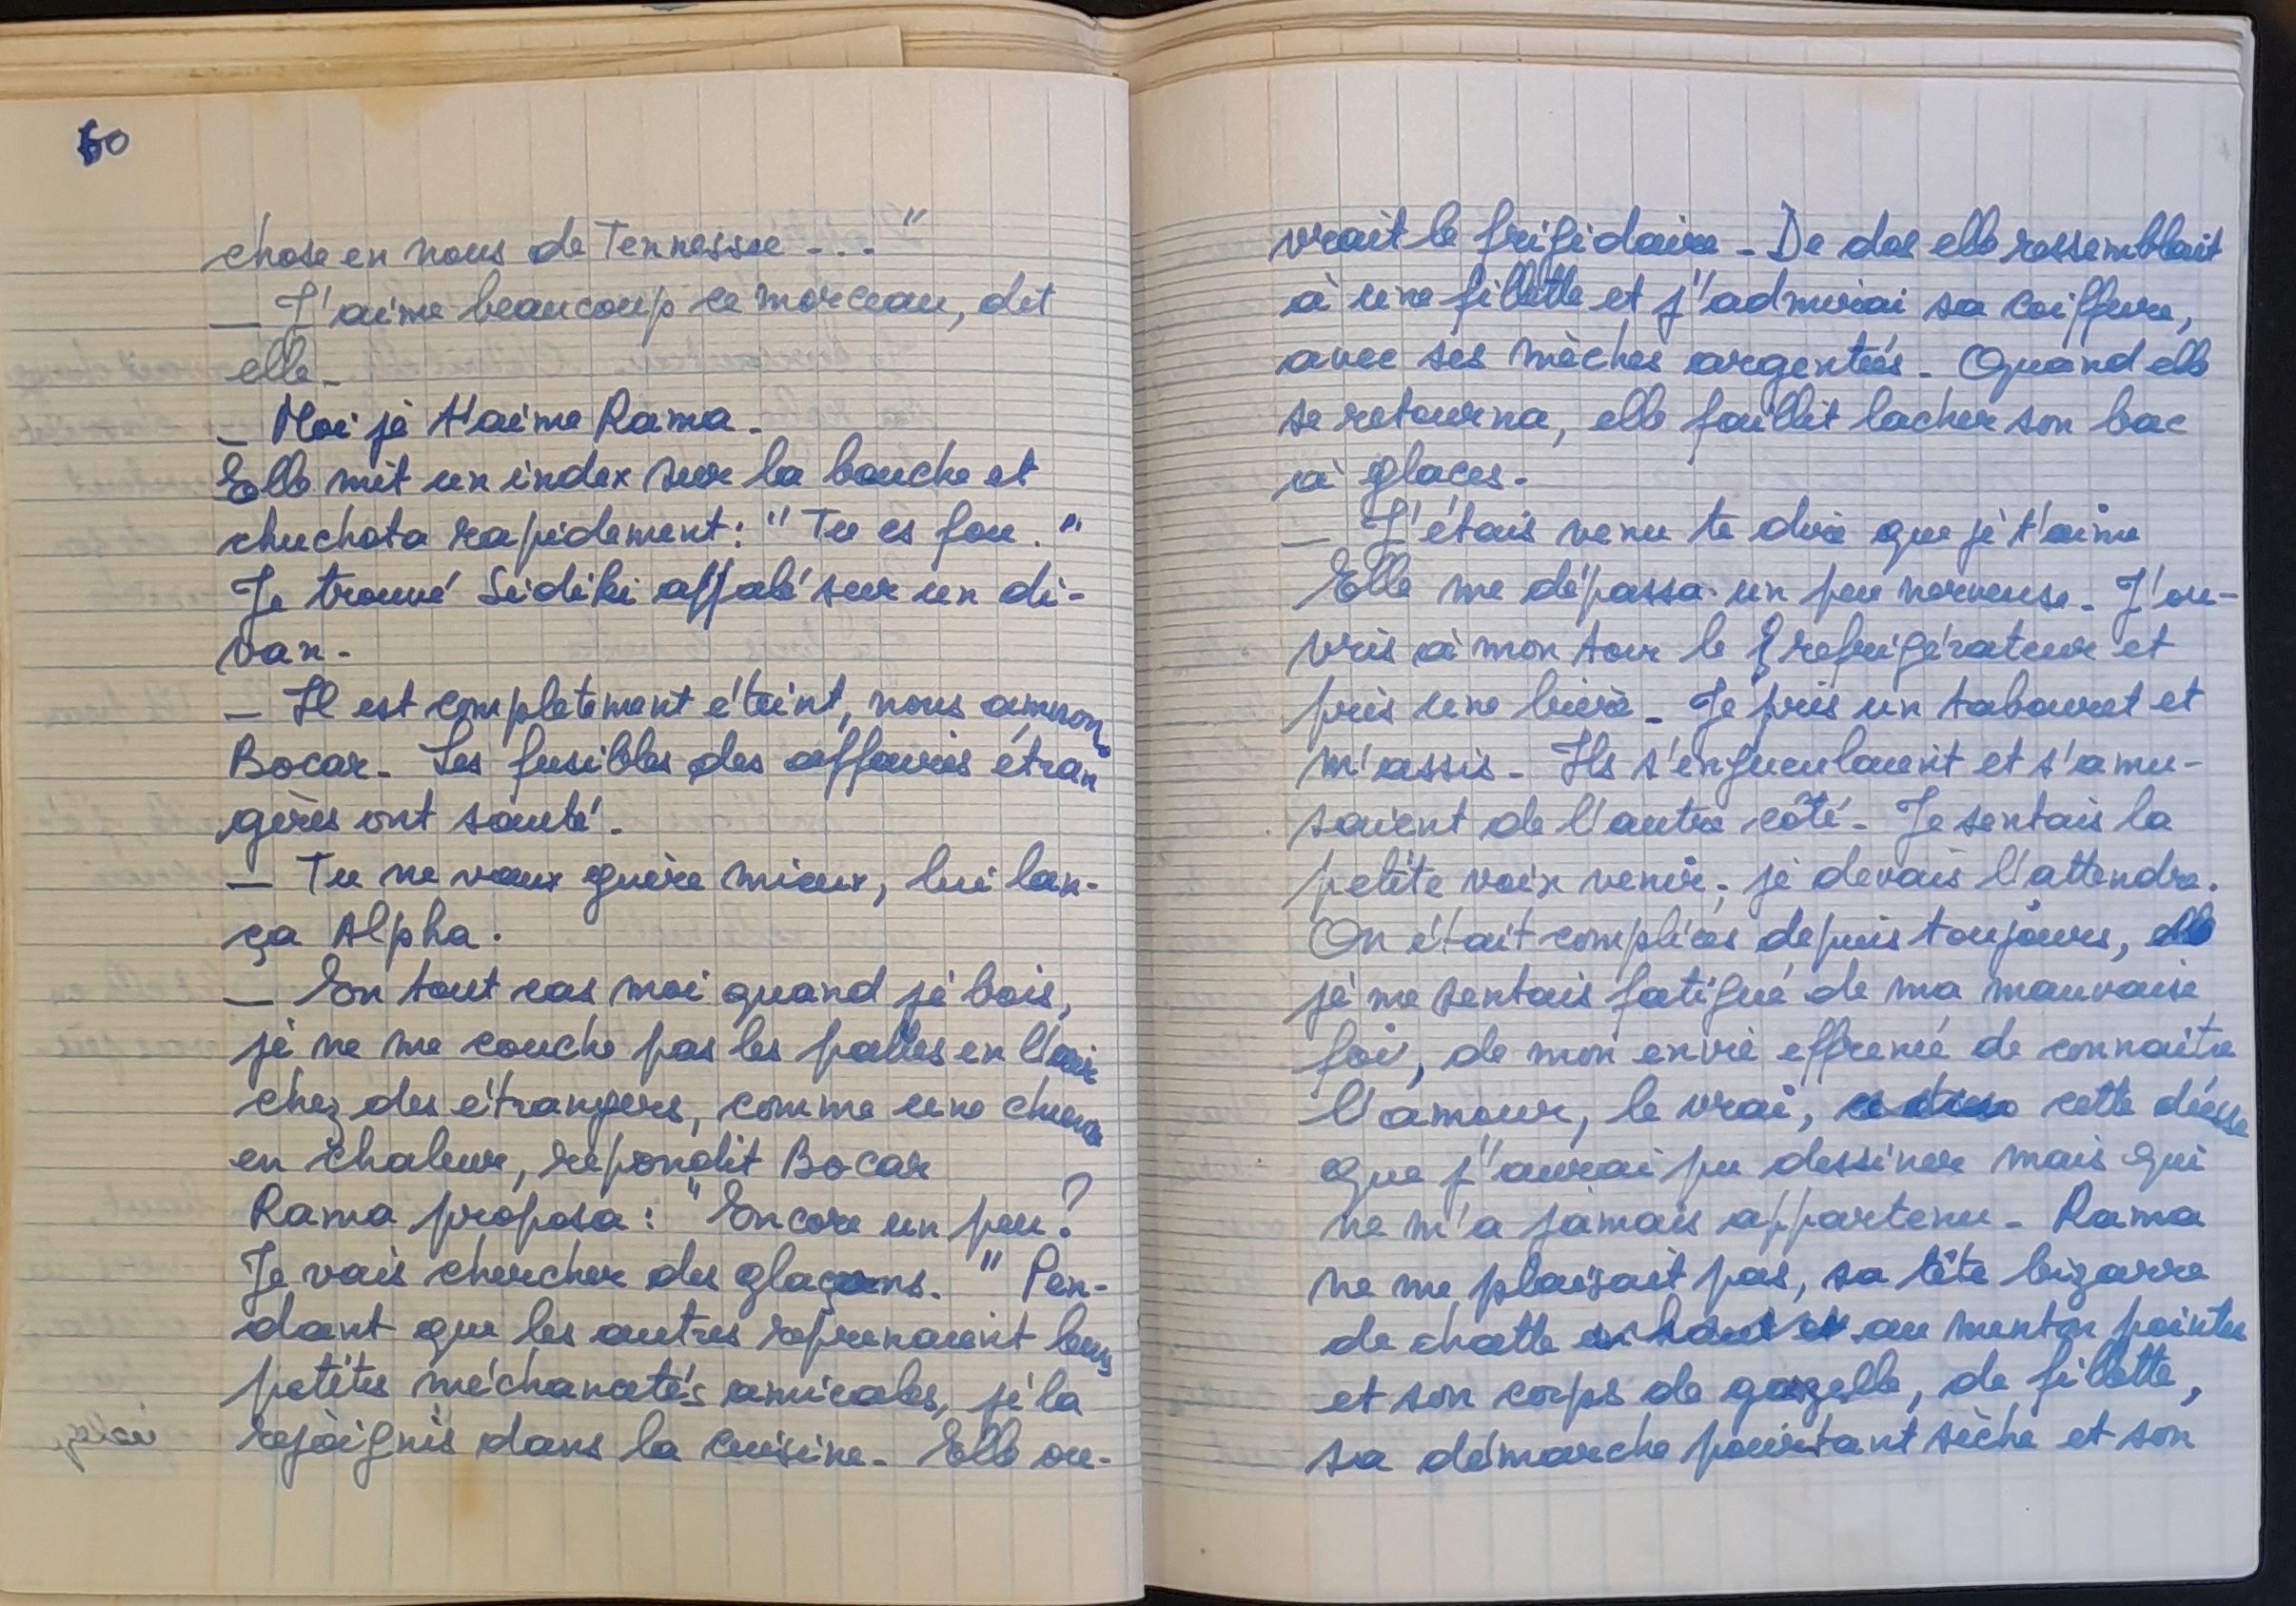 60
chose en nous de Tennessee..."
— J'aime beaucoup ce morceau, dit
elle.
— Moi je t'aime Rama.
Elle mit un index sur la bouche et
chuchota rapidement: "Tu es fou."
Je trouvé Sidiki affalé sur un di-
van.
— Il est completement éteint, nous
Bocar. Les fusibles des affaires étran
gères ont sauté.
— Tu ne vaux guère mieux, lui lan-
ça Alpha.
— En tout cas moi quand je bois,
je ne me couche pas les pattes en l'air
chez des étrangers, comme une chienne
en chaleur, repondit Bocar
Rama proposa: "Encore un peu?
Je vais chercher des glaçons." Pen-
dant que les autres reprenaient leurs
petites méchancetés amicales, je la
rejoignis dans la cuisine. Elle ou-
vrait le frigidaire. De dos elle ressemblait
à une fillette et j'admirai sa coiffure,
avec ses mèches argentées. Quand elle
se retourna, elle faillit lacher son bac
à glaces.
— J'étais venu te dire que je t'aime
Elle me dépassa un peu nerveuse. J'ou-
vris à mon tour le refrigérateur et
pris une bière. Je pris un tabouret et
m'assis. Ils s'engueulaient et s'amu-
saient de l'autre côté. Je sentais la
petite voix venir, je devais l'attendre.
On était complices depuis toujours,
je me sentais fatigué de ma mauvaise
foi, de mon envie effrenée de connaitre
l'amour, le vrai, cette déesse
que j'aurai pu dessiner mais qui
ne m'a jamais appartenu. Rama
ne me plaisait pas, sa tête bizarre
de chatte au menton pointu
et son corps de gazelle, de fillette,
sa démarche pourtant sèche et son